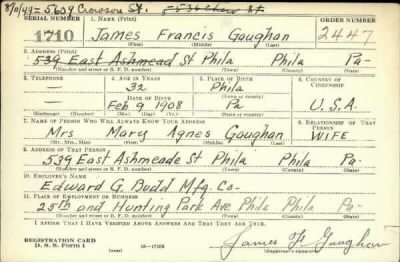 8/11/44 = 5609 Crowson St.
SERIAL NUMBER 1. NAME (Print) ORDER NUMBER
1710 James Francis Gaughan 2447
(First) (Middle) (Last)
2. ADDRESS (Print)
539 East Ashmead St Phila Phila Pa-
(Number and street or R. F. D. number) (Town) (County) (State)
3. TELEPHONE 4. AGE IN YEARS 5. PLACE OF BIRTH 6. COUNTRY OF CITIZENSHIP
— 32 Phila
DATE OF BIRTH (Town or county)
— Feb 9 1908 Pa U.S.A.
(Exchange) (Number) (Mo.) (Day) (Yr.) (State or country)
7. NAME OF PERSON WHO WILL ALWAYS KNOW YOUR ADDRESS 8. RELATIONSHIP OF THAT PERSON
Mrs Mary Agnes Gaughan WIFE
(Mr., Mrs., Miss) (First) (Middle) (Last)
9. ADDRESS OF THAT PERSON
539 East Ashmeade St Phila Phila Pa-
(Number and street or R. F. D. number) (Town) (County) (State)
10. EMPLOYER'S NAME
Edward G. Budd Mfg. Co-
11. PLACE OF EMPLOYMENT OR BUSINESS
25th and Hunting Park Ave Phila Phila Pa-
(Number and street or R. F. D. number) (Town) (County) (State)
I AFFIRM THAT I HAVE VERIFIED ABOVE ANSWERS AND THAT THEY ARE TRUE.
REGISTRATION CARD
D. S. S. Form 1 (over) 16-17105 James F. Gaughan
(Registrant's signature)